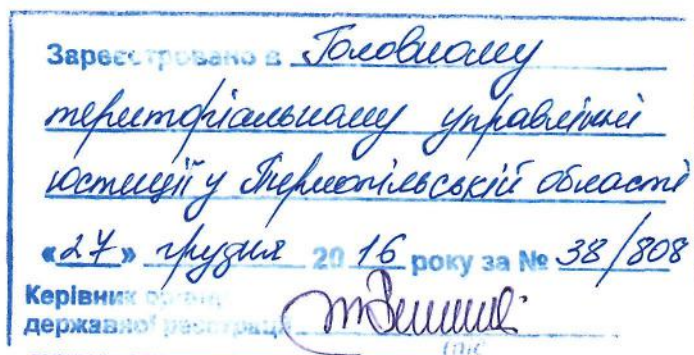 Зареєстровано в Головному
територіальному управлінні
юстиції у Тернопільській області
«27» грудня 2016 року за № 38/808
Керівник органу
державної реєстрації